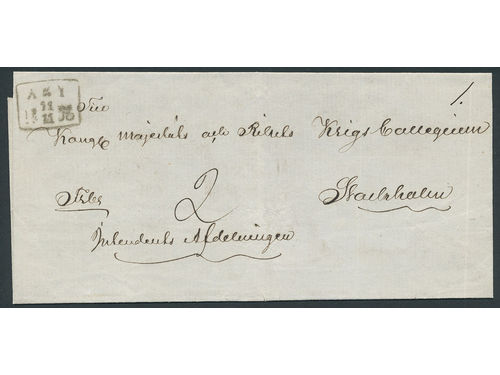 ASY
22
11
Till
Kongl Majestäts och Rikets Krigs Collegium
1.
Frbr
2
Stockholm
Intendents Afdelningen